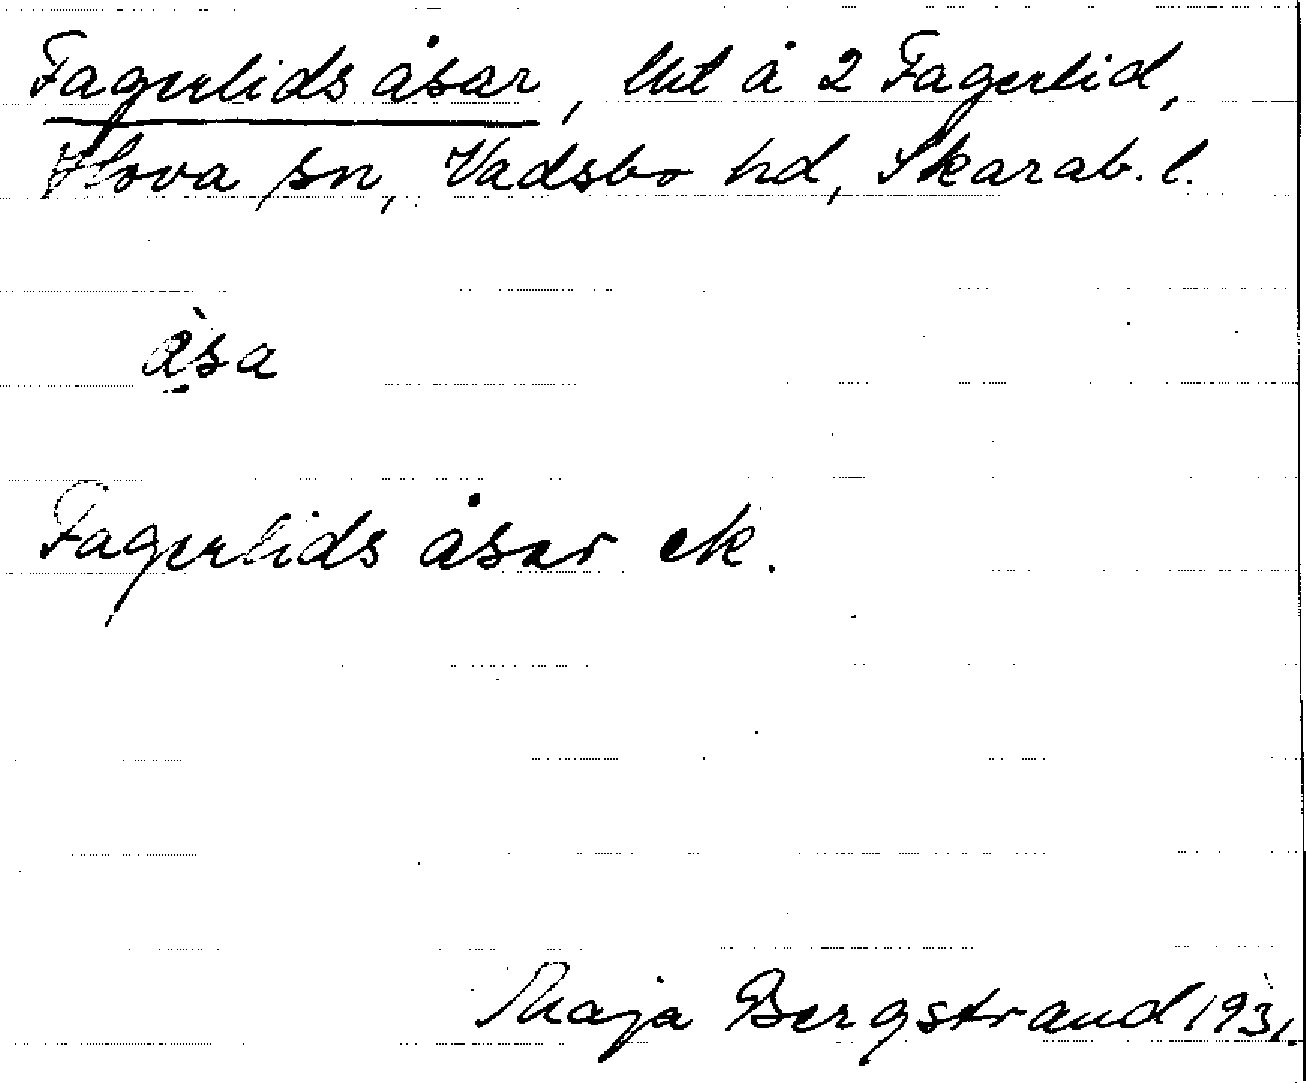 Fagerlids åsar, lht å 2 Fagerlid,
Hova sn, Vadsbo hd, Skarab. l.
åsa
Fagerlids åsar ek.
Maja Bergstrand 1931.